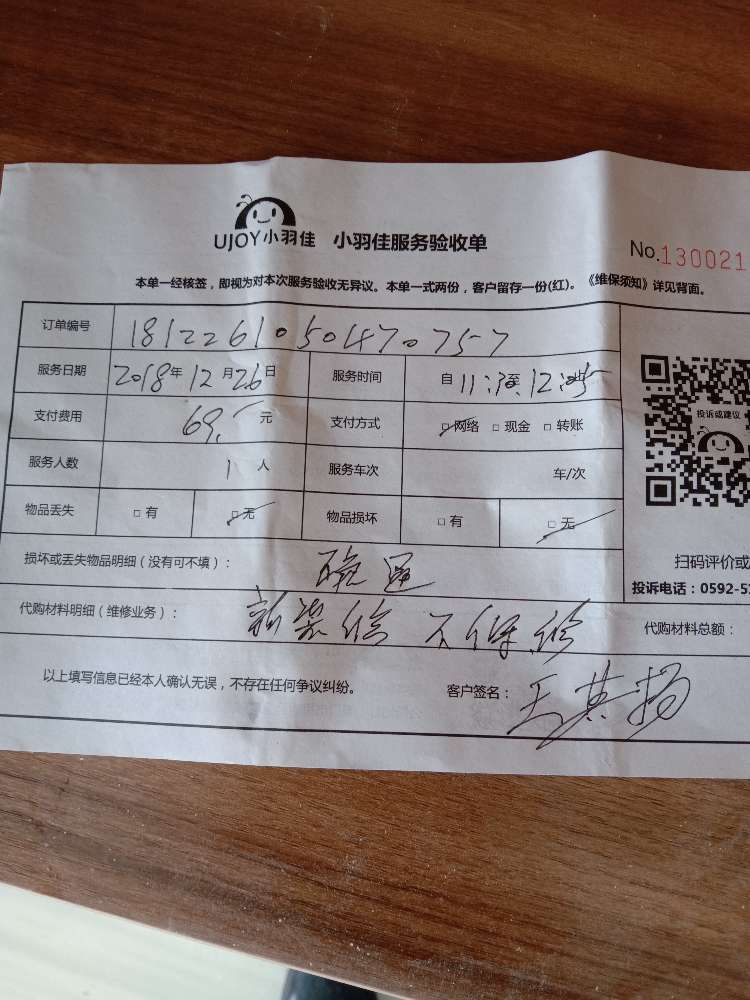 UJOY小羽佳 小羽佳服务验收单
No.130021
本单一经核签，即视为对本次服务验收无异议。本单一式两份，客户留存一份(红)。《维保须知》详见背面。
订单编号 181226105047075 7
服务日期 2018年12月26日 服务时间 自11:30至12:
支付费用 69.一元 支付方式 □网络 □现金 □转账
投诉或建议
服务人数 1人 服务车次 车/次
物品丢失 □有 □无 物品损坏 □有 □无
扫码评价或
损坏或丢失物品明细（没有可不填）： 疏通
投诉电话：0592-5
代购材料明细（维修业务）： 不保
代购材料总额：
以上填写信息已经本人确认无误，不存在任何争议纠纷。 客户签名：王其扬